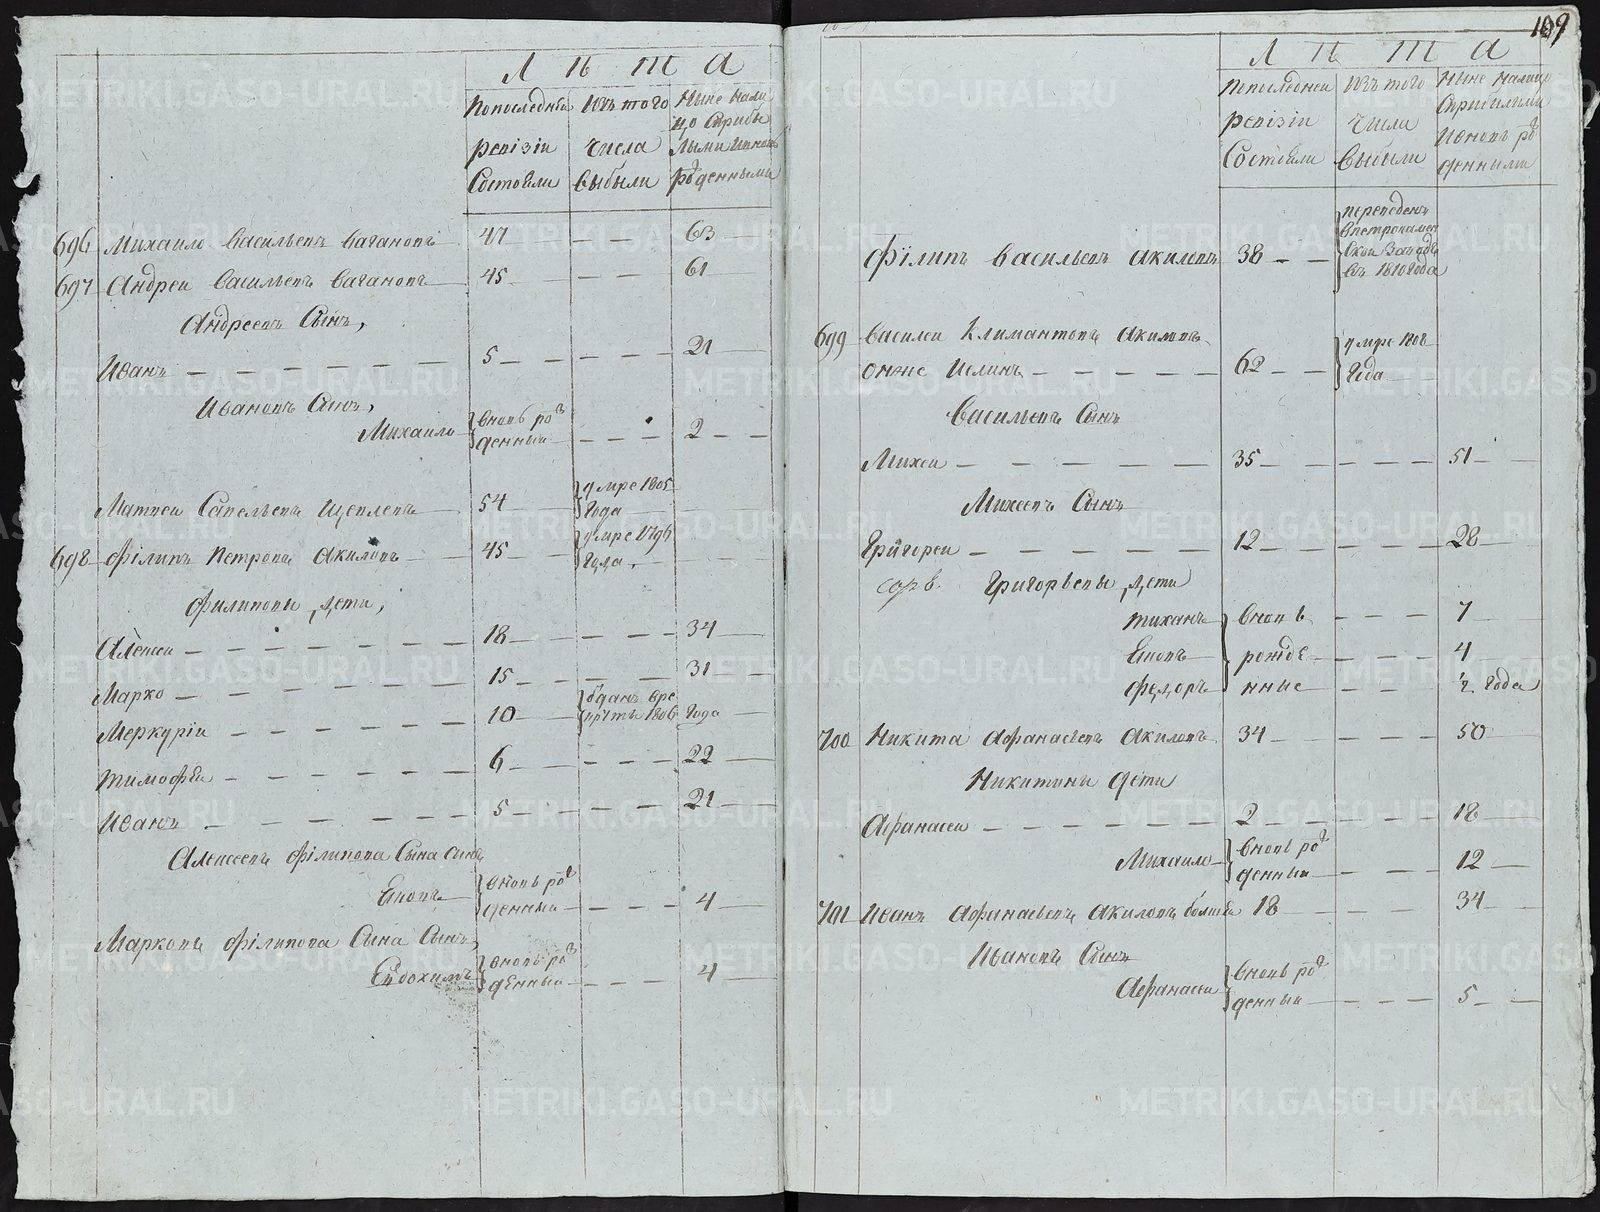 Л ѣ т а
По последней ревизіи Состояли
Изъ того числа выбыли
Ныне нали цо Сприбы лыми И вновь рожденными
696 Михаило Васильевъ Вагановъ 47 — — 63
697 Андреи Васильевъ Вагановъ 45 — — 61
Андреевъ Сынъ,
Иванъ 5 — — 21
Ивановъ Сынъ,
Михаило вновь рожденный — — 2
Матвеи Савельевъ Щевлевъ 54 умре 1805 Года
698 Филипъ Петровъ Акиловъ 45 умре 1796 Года
Филиповы дети,
Алексеи 18 — — 34
Марко 15 — — 31
Меркуріи 10 отданъ в рекруты 1806 Года
Тимофеи 6 — — 22
Иванъ 5 — — 21
Алексеевъ Филипова Сына Сынъ
Еновъ вновь рожденный — — 4
Марковъ Филипова Сына Сынъ,
Евдохимъ вновь рожденный — — 4
109
Л ѣ т а
По последней ревизіи Состояли
Изъ того числа выбыли
Ныне налицо Сприбылыми И вновь рожденными
Филипъ Васильевъ Акиловъ 38 — — переведенъ в Петрокамен ской Заводъ въ 1810 Года
699 Василеи Климантовъ Акиловъ
онже Иглинъ 62 — — умре 1808 Года
Васильевъ Сынъ
Михеи 35 — — 51
Михеевъ Сынъ
Григореи 12 — — 28
Григорьевы дети
Тиханъ вновь — — 7
Еновъ рожде — — 4
Федоръ нные — — ½ года
700 Никита Афанасьевъ Акиловъ 34 — — 50
Никитины дети
Афанасеи 2 — — 18
Михаило вновь рожденный — — 12
701 Иванъ Афанасьевъ Акиловъ болшеи 18 — — 34
Ивановъ Сынъ
Афанасеи вновь рожденный — — 5
METRIKI.GASO-URAL.RU